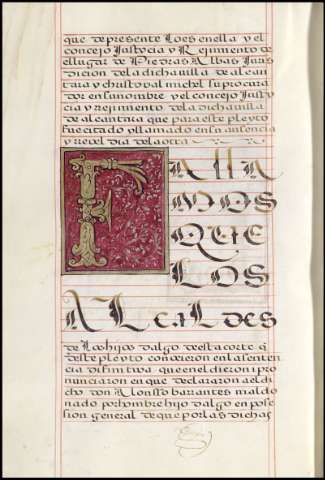 que de presente lo es en ella y el
concejo Justycia y Rejimiento de
el lugar de Piedras Albas Juris
dicion de la dicha villa de alcan
tara y christoval michel su procura
dor en su nombre y el concejo Justy
cia y rejimiento de la dicha villa
de alcantara que para este pleyto
fue citado y llamado en su ausencia
y rebeldia de la otra
FALLA
MOS
QUE
LOS
ALCalDes
de los hijos dalgo de esta corte q
deste pleyto conocieron en la senten
cia difinitiva que en el dieron i pro
nunciaron en que declararon a el di
cho don Alonsso barrantes maldo
nado por hombre hijo dalgo en pose
sion general de que por las dichas